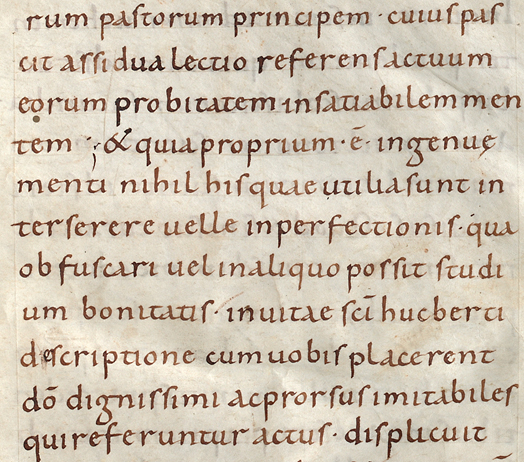 rum pastorum principem · cuius pas
cit assidua lectio referens actuum
eorum probitatem insatiabilem men
tem ; & quia proprium · ē · ingenuę
menti nihil his quae utilia sunt in
terserere uelle inperfectionis · qua
obfuscari uel in aliquo possit studi
um bonitatis · in uitae scī hucberti
descriptione cum uobis placerent
dō dignissimi ac prorsus imitabiles
qui referuntur actus · displicuit